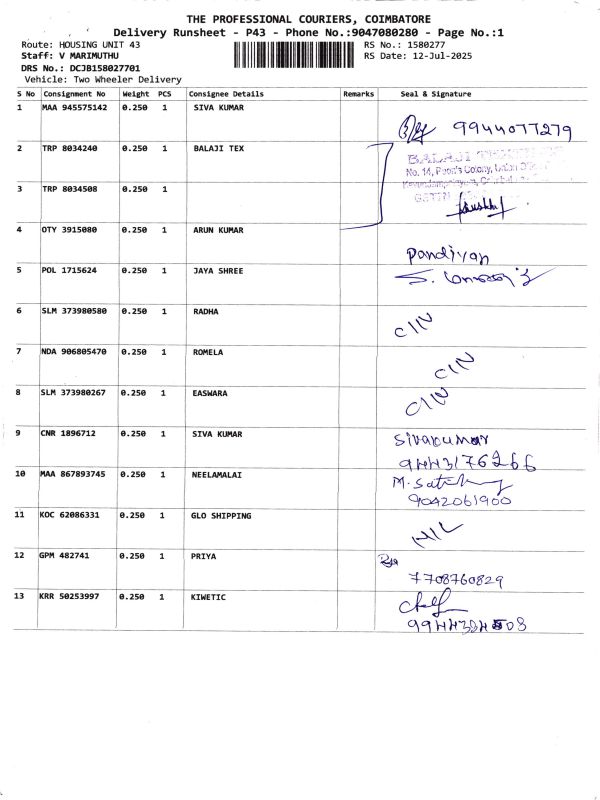 THE PROFESSIONAL COURIERS, COIMBATORE
Delivery Runsheet - P43 - Phone No.:9047080280 - Page No.:1
Route: HOUSING UNIT 43 RS No.: 1580277
Staff: V MARIMUTHU RS Date: 12-Jul-2025
DRS No.: DCJB158027701
Vehicle: Two Wheeler Delivery
S No Consignment No Weight PCS Consignee Details Remarks Seal & Signature
1 MAA 945575142 0.250 1 SIVA KUMAR
9944077279
2 TRP 8034240 0.250 1 BALAJI TEX
BALAJI
No. 14, Colony, Union
3 TRP 8034508 0.250 1
4 OTY 3915080 0.250 1 ARUN KUMAR
Pandiyan
5 POL 1715624 0.250 1 JAYA SHREE
6 SLM 373980580 0.250 1 RADHA
CIN
7 NDA 906805470 0.250 1 ROMELA
CIN
8 SLM 373980267 0.250 1 EASWARA
CIN
9 CNR 1896712 0.250 1 SIVA KUMAR
Sivakumar
9443176266
10 MAA 867893745 0.250 1 NEELAMALAI
9042061900
11 KOC 62086331 0.250 1 GLO SHIPPING
12 GPM 482741 0.250 1 PRIYA
7708760829
13 KRR 50253997 0.250 1 KIWETIC